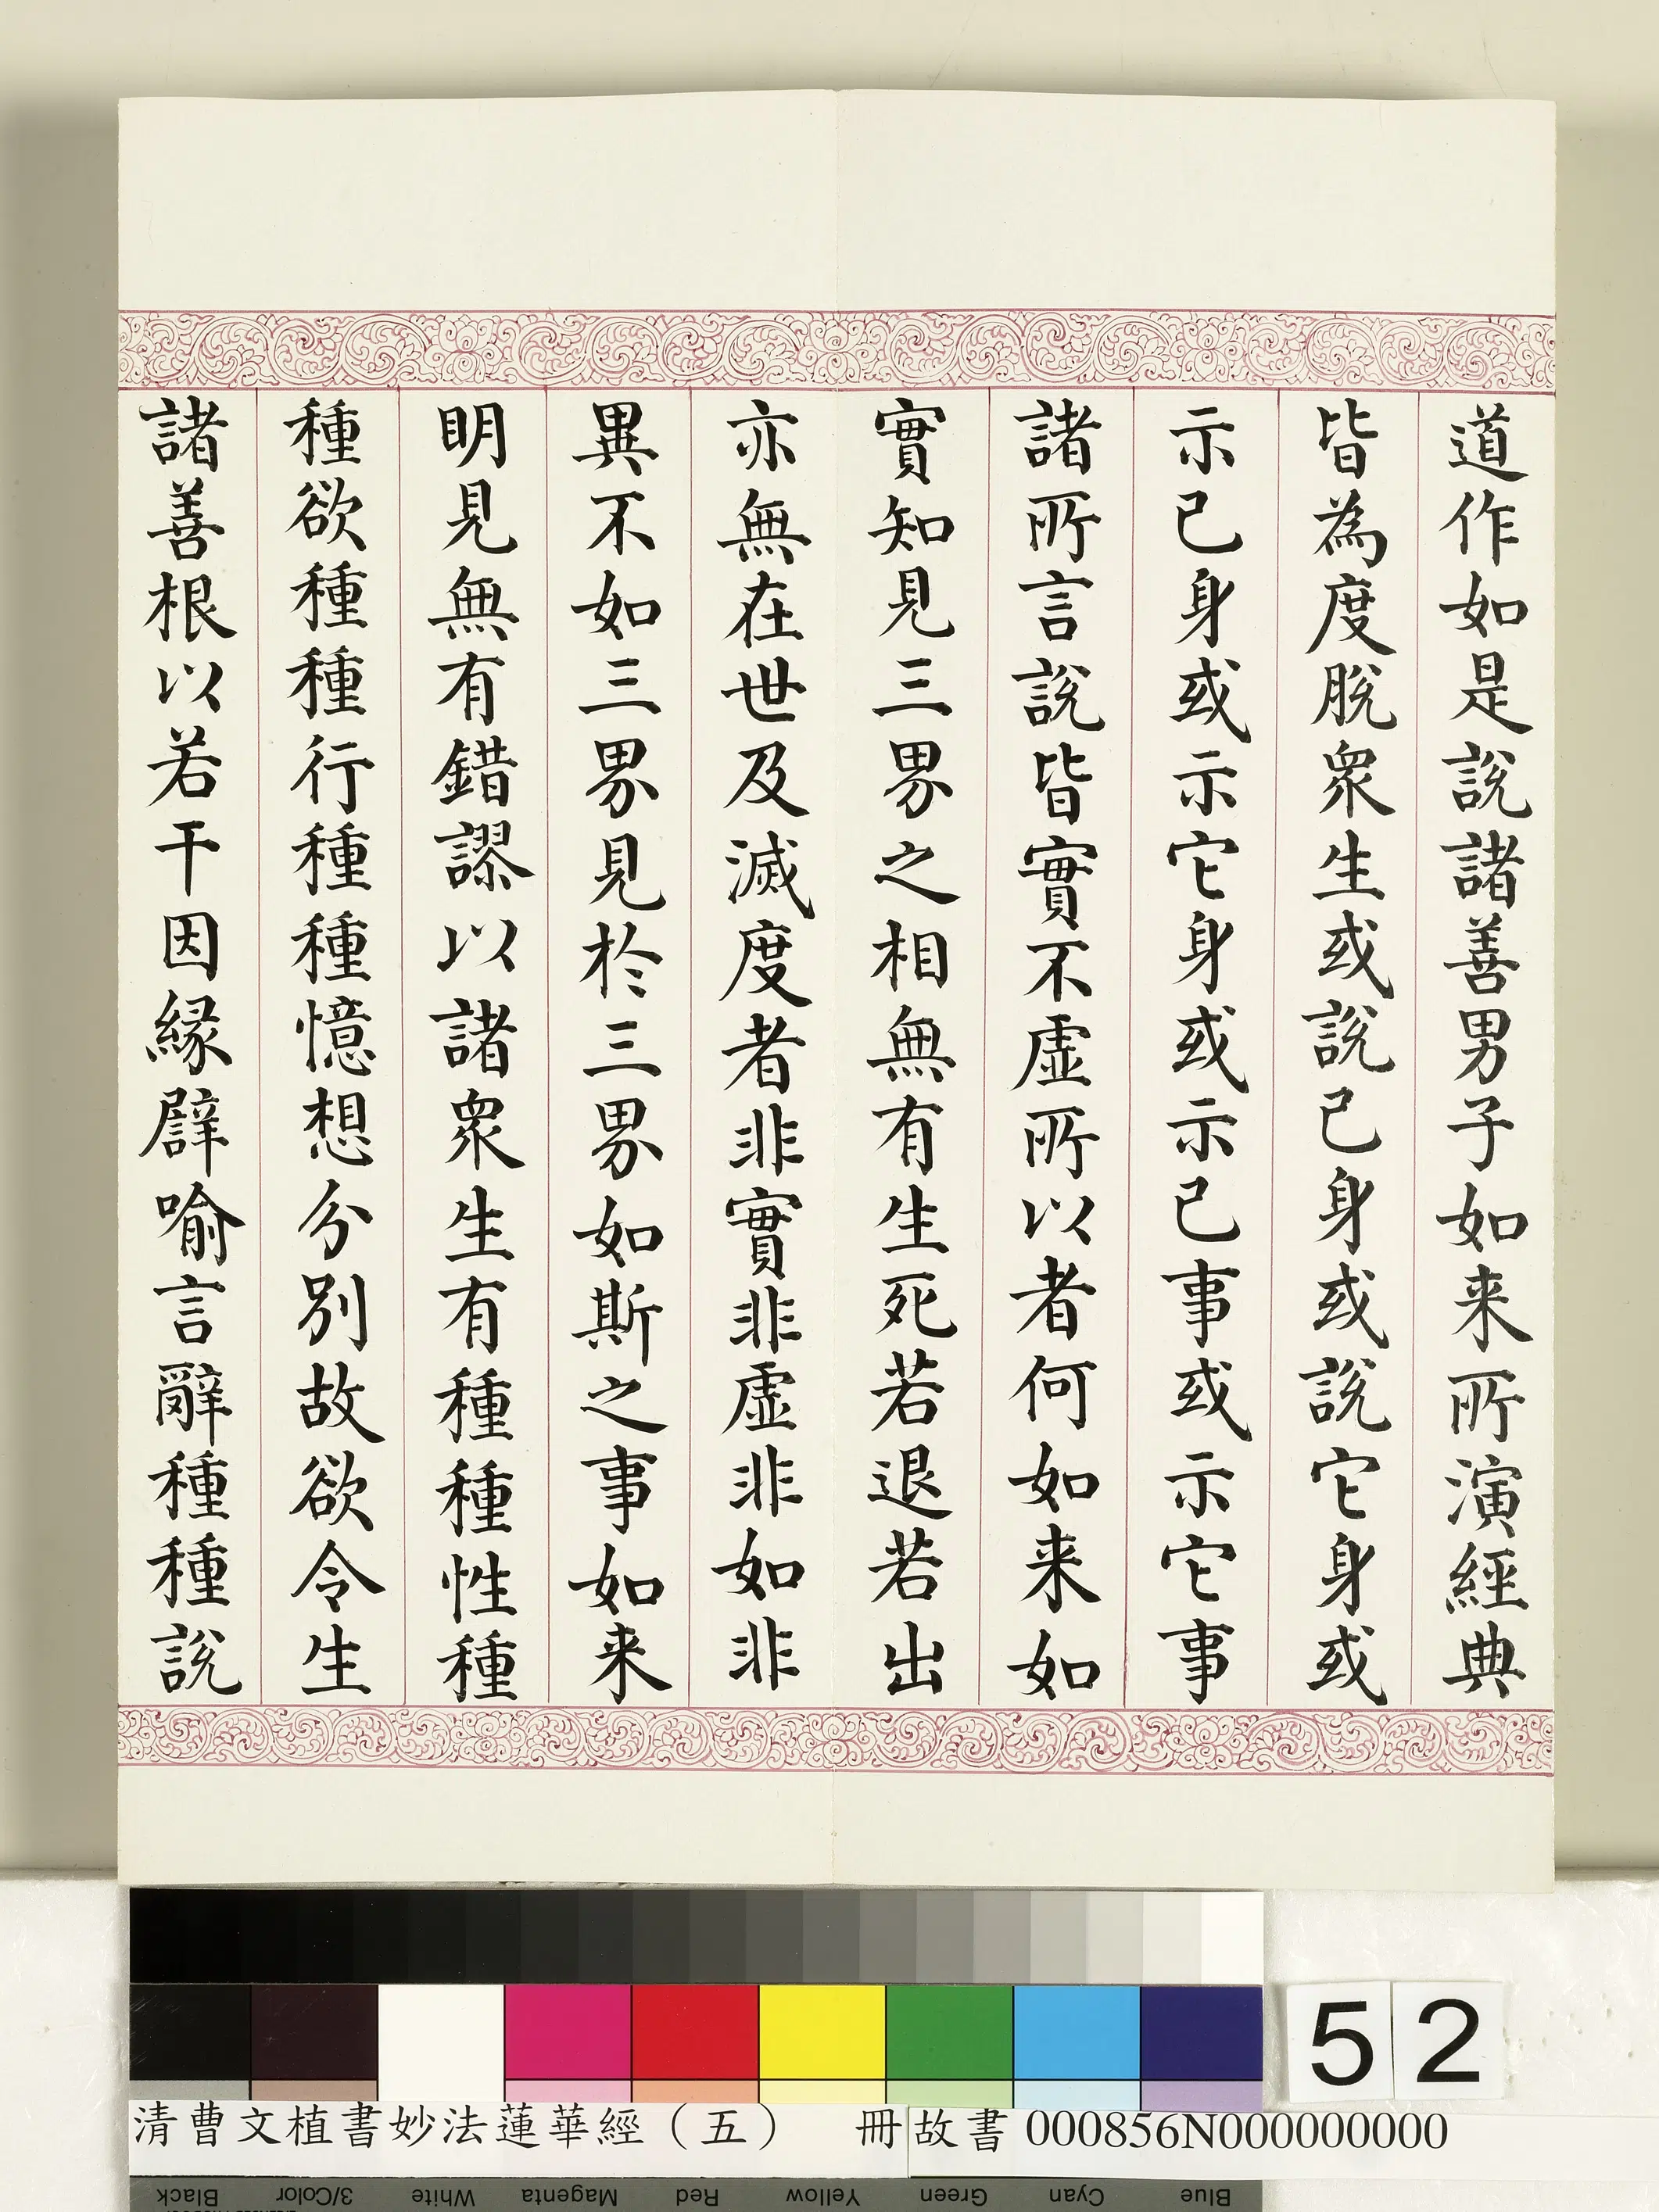 道作如是說諸善男子如来所演經典
皆為度脫衆生或說己身或說它身或
示己身或示它身或示己事或示它事
諸所言說皆實不虛所以者何如来如
實知見三界之相無有生死若退若出
亦無在世及滅度者非實非虛非如非
異不如三界見於三界如斯之事如来
明見無有錯謬以諸衆生有種種性種
種欲種種行種種憶想分別故欲令生
諸善根以若干因緣譬喻言辭種種說
52
清曹文植書妙法蓮華經（五） 冊故書000856N000000000
Black 3/Color White Magenta Red Yellow Green Cyan Blue